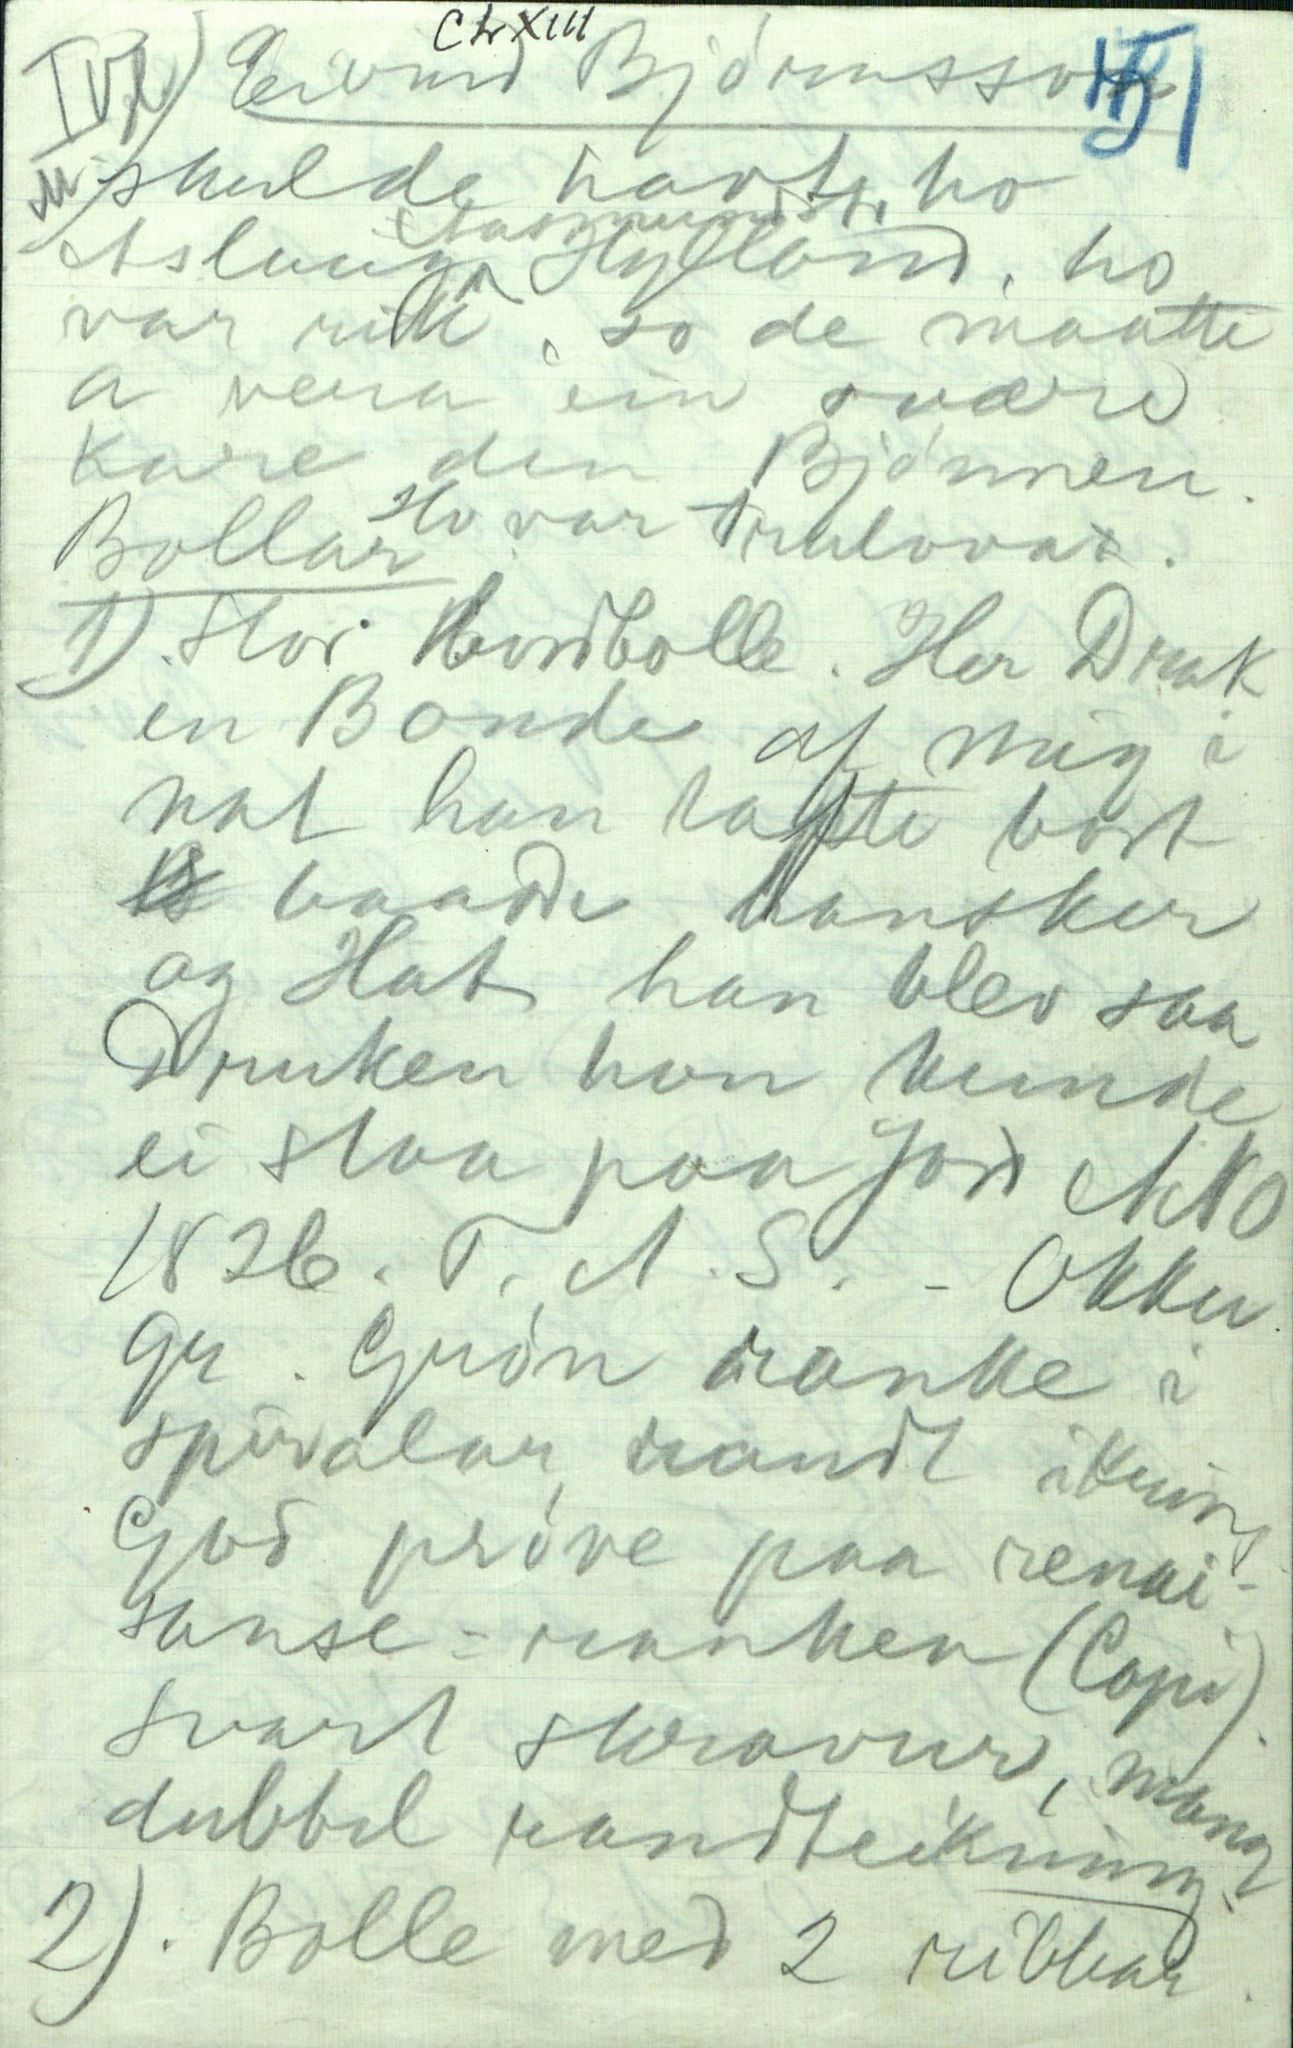 CLXIII
Eivind Bjørnsson
skulde havt ho
Aslaug Aasmundsd. Hylland, ho
var rik, so de maatte
a vera ein svære
kare den Bjønnen.
Ho var trulova.
Bollar
1). Stor Bordbolle. Her Drak
en Bonde af mig i
nat han tapte bort
baade hansker
og Hat han blev saa
Druken han kunde
ei staa paa Jord ANO
1826. T. A. S. - Okker
gr. Grøn ranke i
spiralar rundt ikring
God prøve paa renai-
sanse-ranken (Copi).
Svart skravur, mang
dubbel randteikning.
2). Bolle med 2 ribbar.